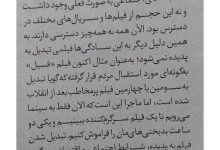 اجتماعی به صورت فعلی وجود داشت
و نه این حجم از فیلم‌ها و سریال‌های مختلف در
دسترس بود. الان همه به همه‌چیز دسترسی دارند، به
همین دلیل دیگر به این سادگی‌ها فیلمی تبدیل به
پدیده نمی‌شود؛ به‌عنوان مثال اکنون فیلم «فسیل»
به‌گونه‌ای مورد استقبال مردم قرار گرفته که گویا تبدیل
به سومین یا چهارمین فیلم پرمخاطب بعد از انقلاب
شده است، اما ماجرا این است که الان فقط به سینما
می‌رویم تا یک فیلم سرگرم‌کننده ببینیم و یکی دو
ساعت بدبختی‌های‌مان را فراموش کنیم. تبدیل شدن
فیلم به پدیده، شرایط اجتماعی